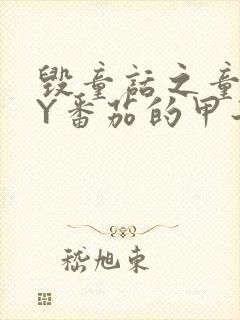 毁童话之童
Y番茄的甲
嵇旭东